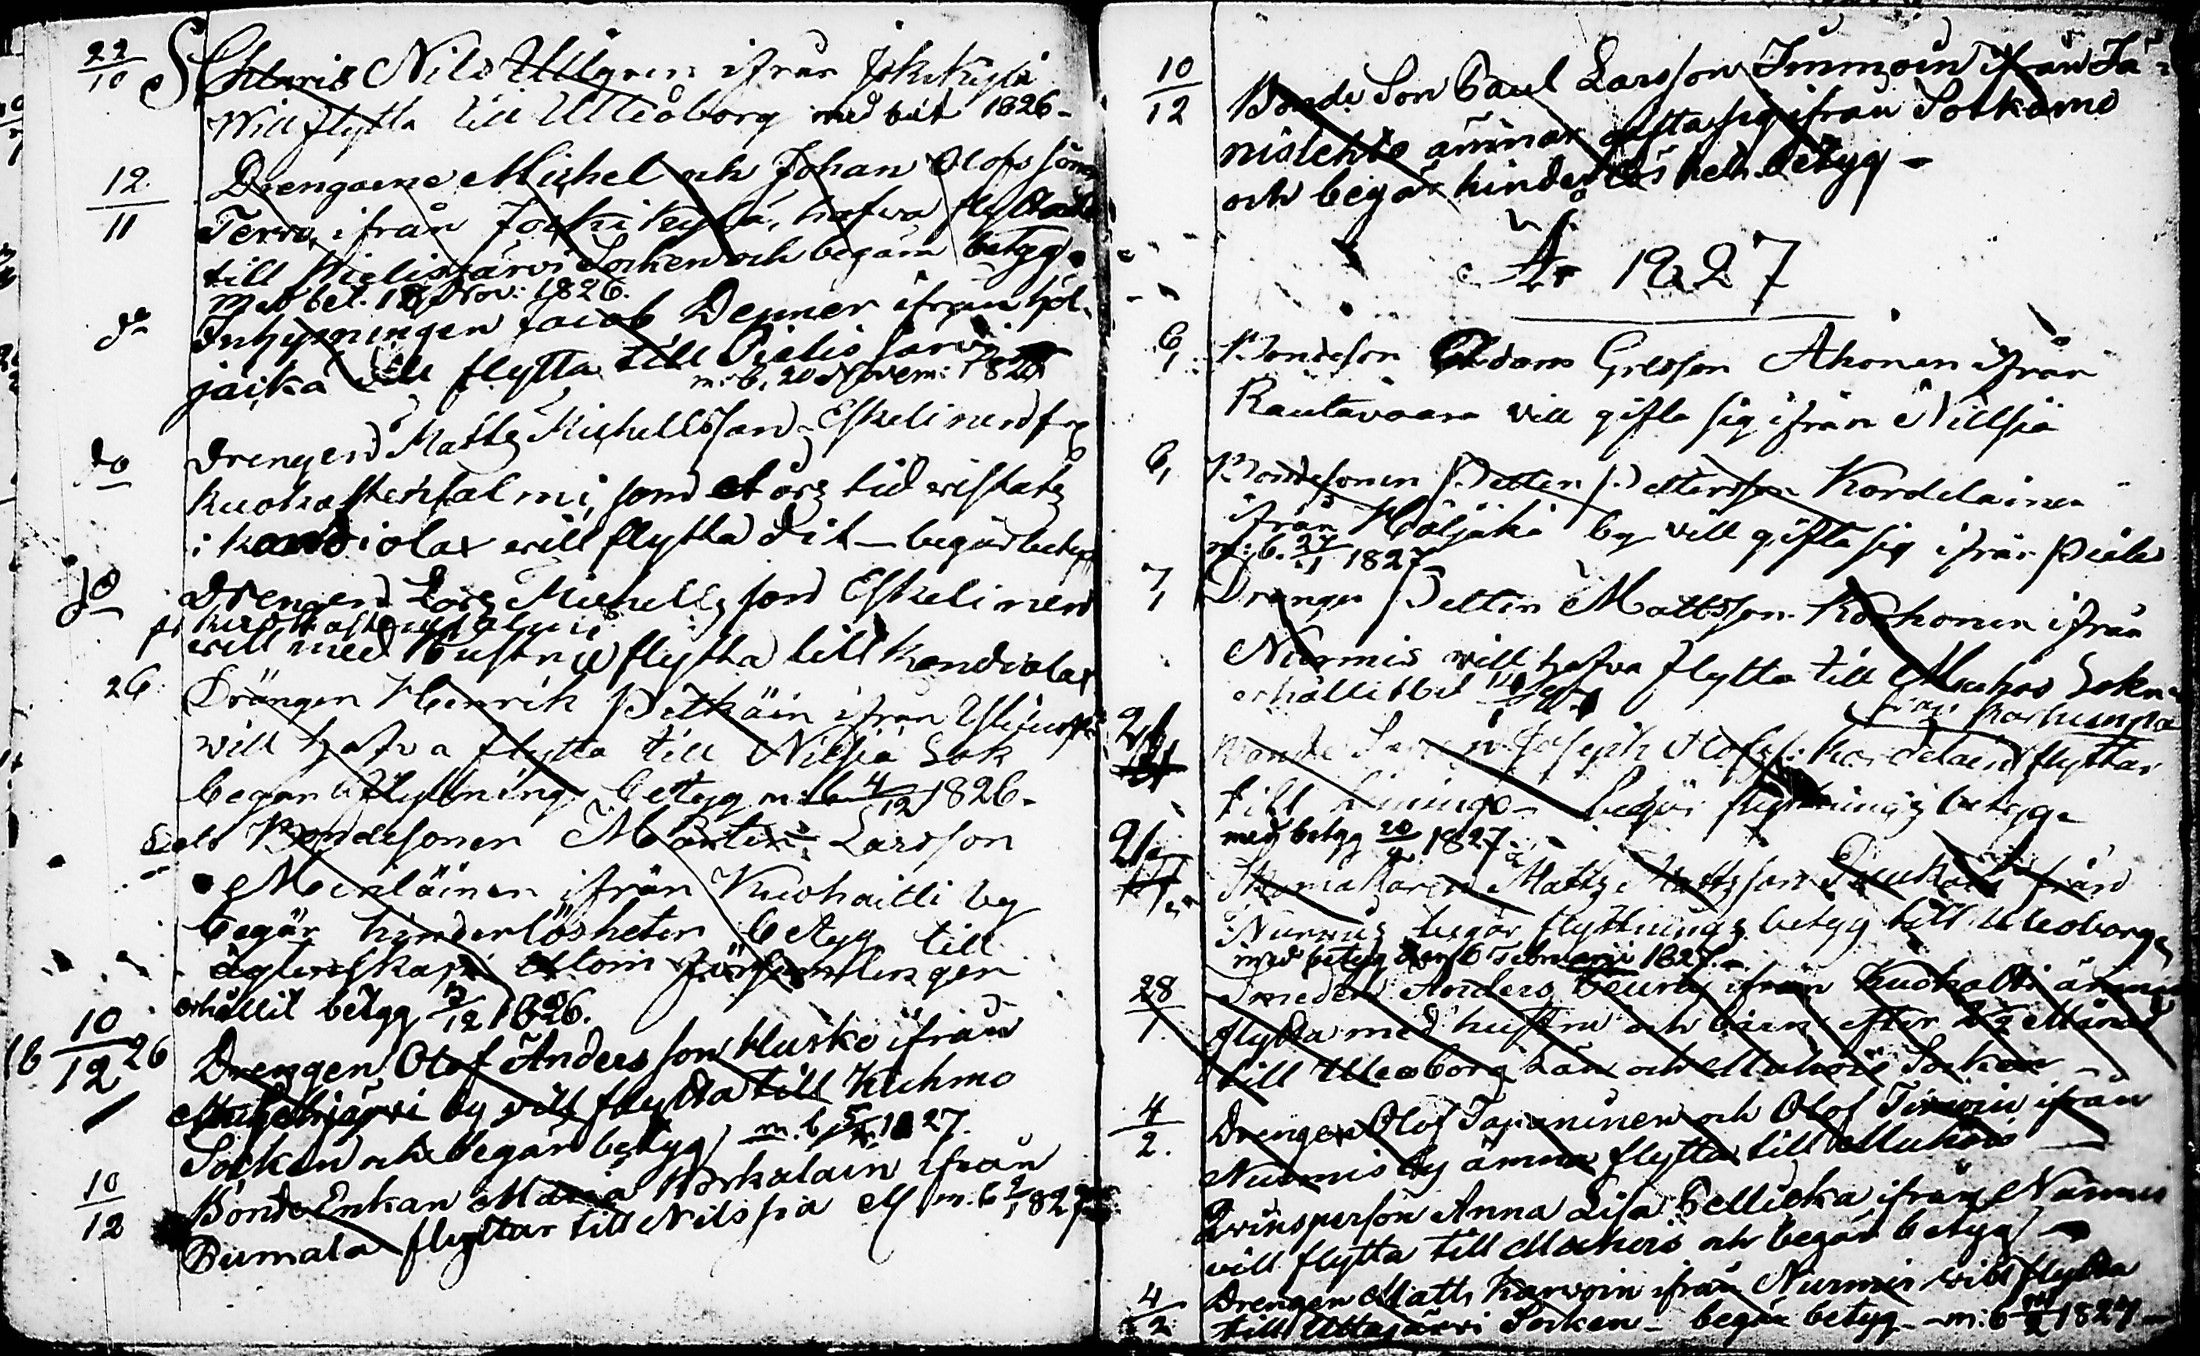 22/10 Nils Ullgren ifrån Jokikylä
Will flytta till Uleåborg med bet 1826-
12/11 Drengarne Michel och Johan Olofs söner
Terva, ifrån Jokikylä, hafva flyttat
till Pielisjärvi Socken och begära betyg.
Med bet. Nov: 1826.
do Inhysningen Jacob Denner ifrån Höl-
jäikä will flytta till Pielisjärvi
m: b. 20 Novem: 1826
do Drengen Matts Michellsson Eskelinen fr
Kuokastensalmi, som ett års tid vistats
i Kandiolax will flytta dit - begär betyg
do Drengen Lars Michells son Eskelinen
fr Kuokastensalmi
will med Hustru flytta till Kandiolax
26 Drängen Henrik Pitkäin ifrån
will hafva flytta till Nilsiä Sok
begär utflyttning betyg m: b 4/12 1826-
Bondesonen Mårten Larsson
Meriläinen ifrån Kuohaitti by
begär hinderlösheten betyg till
ägtenskap utom församlingen
erhållit betyg 12 1826.
10/12 26 Drengen Olof Andersson Husko ifrån
by will flytta till Kuhmo
Socken och begär betyg m. b 1827.
10/12 Bonde Enkan Maria Korkalain ifrån
Pumala flyttar till Nilssiä m. b 1827
10/12 Bonde Son Paul Larsson Immoin ifrån Jä-
nislehto ämnar gifta sig ifrån Sotkamo
och begär hinderlös het betyg -
År 1827
6/1 Bondeson Adam Gresson Ahonen ifrån
Rautavaara vill gifta sig ifrån Nillsiä
6/1 Bondesonen Petter Pettersson Kordelainen
ifrån Höljäkä by vill gifta sig ifrån Pielis
m: b. 27/1 1827
7/1 Drängen Petter Mattsson Korhonen ifrån
Nurmis will hafva flytta till Muhos Sokn
erhållit bet
från Karhunpä
21 Bonde Sonen Joseph Olofss: Kordelain flyttar
till Liminge - begär flyttnings betyg -
med betyg 20 1827.
21 Skomakaren Matts Mattsson från
Nurmis begär flyttnings betyg till Uleoborg
med betyg den 6 Februarii 1827.-
28/1 Smeden Anders ifrån Kuohatti ämnar
flytta med hustru och barn efter
till Uleoborg Län och Muhois Socken
4/2. Drengen Olof Tapaninen och Olof ifrån
Nurmis by ämna flytta till Muhois
Qvinsperson Anna Lisa Pellicka ifrån Nurmis
vill flytta till Muhois och begär betyg -
4/2 Drengen Matts Karvoin ifrån Nurmis will flytta
till Uttajärvi Socken - begär betyg - m: b 1827-